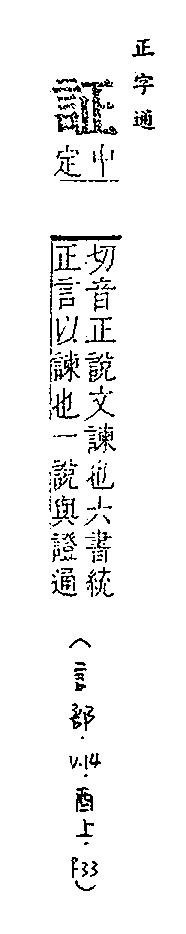 正字通
証
中定
切音正說文諫也六書統
正言以諫也一說與證通
（言部．V.14．酉上．P33）